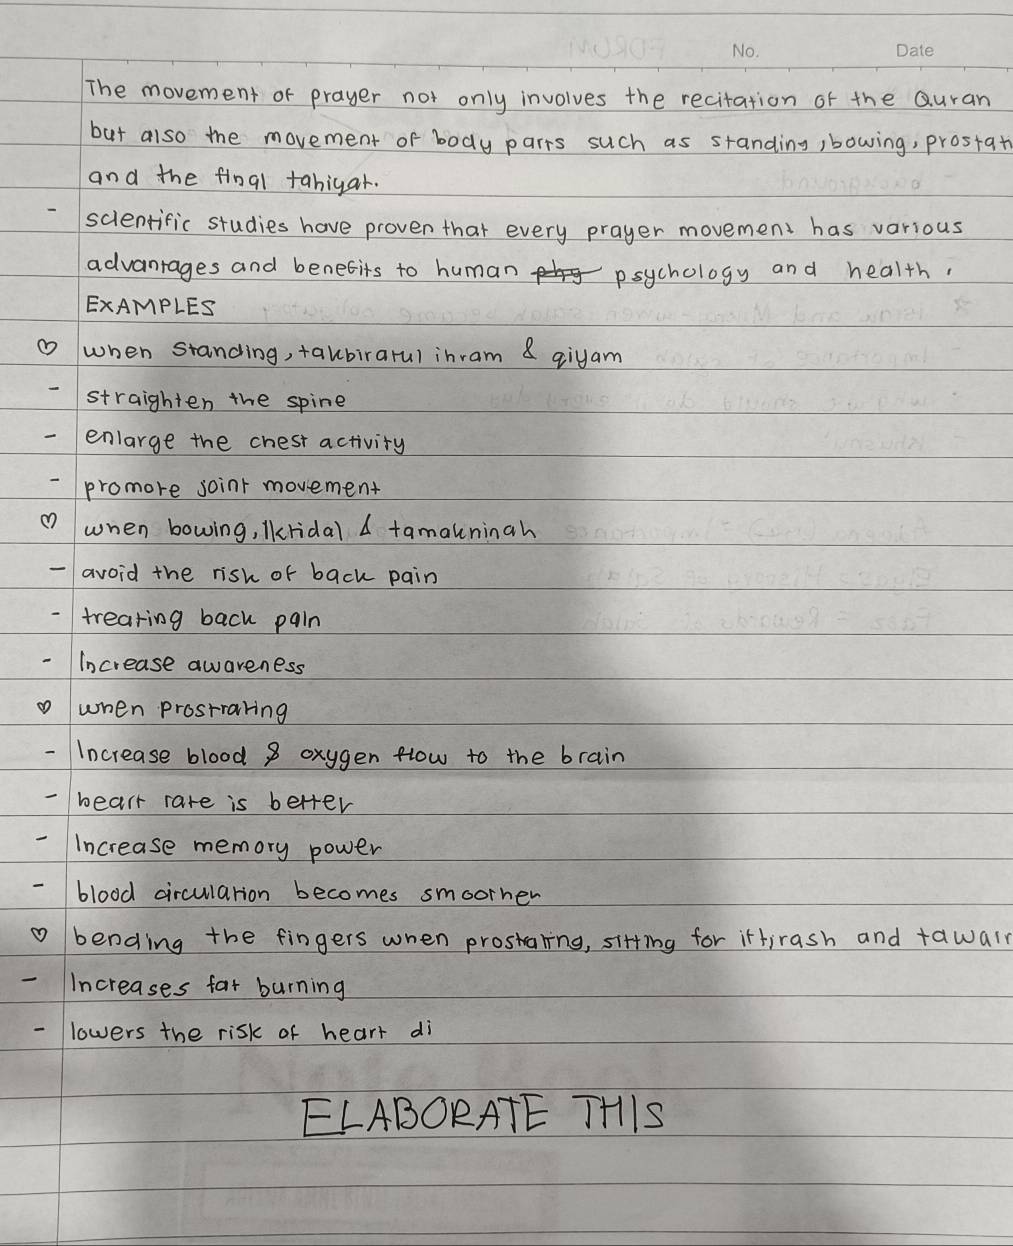 No. Date
The movement of prayer not only involves the recitation of the Quran
but also the movement of body parts such as standing, bowing, prostat
and the final tahiyat.
- scientific studies have proven that every prayer movement has various
advantages and benefits to human phy psychology and health.
EXAMPLES
♡ when standing, takbiratul ihram & qiyam
- straighten the spine
- enlarge the chest activity
- promote joint movement
♡ when bowing, Iktidal & tamakninah
- avoid the risk of back pain
- treating back pain
- Increase awareness
♡ when prostrating
- Increase blood & oxygen flow to the brain
- heart rate is better
- Increase memory power
- blood circulation becomes smoother
♡ bending the fingers when prostrating, sitting for iftirash and tawarr
- Increases fat burning
- lowers the risk of heart di
ELABORATE THIS